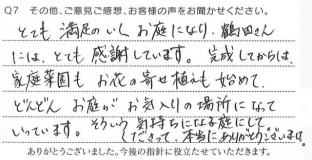 Q7 その他、ご意見ご感想、お客様の声をお聞かせください。
とても 満足のいく お庭になり、鶴田さん
には、とても 感謝しています。 完成してからは、
家庭菜園も お花の寄せ植えも 始めて、
どんどん お庭が お気入りの場所になって
いっています。 そういう 気持ちになる庭にして
くださって、本当にありがとうございました。
ありがとうございました。今後の指針に役立たせていただきます。